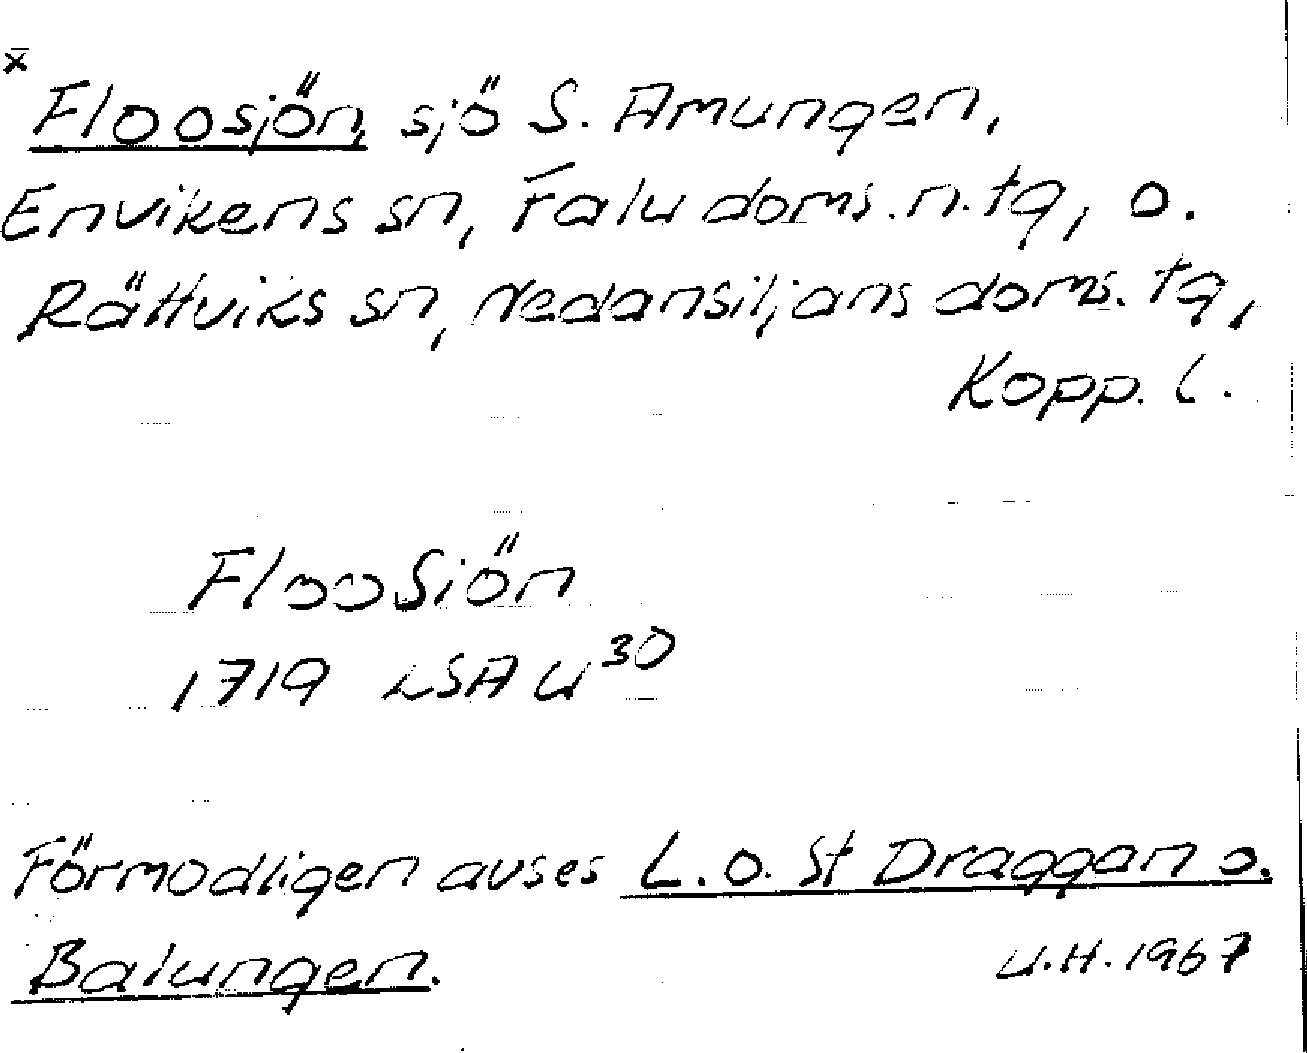 x̄
Floosjön, sjö S. Amungen,
Envikens sn, Falu doms. n. tg, o.
Rättviks sn, Nedansiljans doms. tg,
Kopp. l.
FlooSiön
1719 LSA U³⁰
Förmodligen avses L. o. St Draggan o.
Balungen.
U.H. 1967